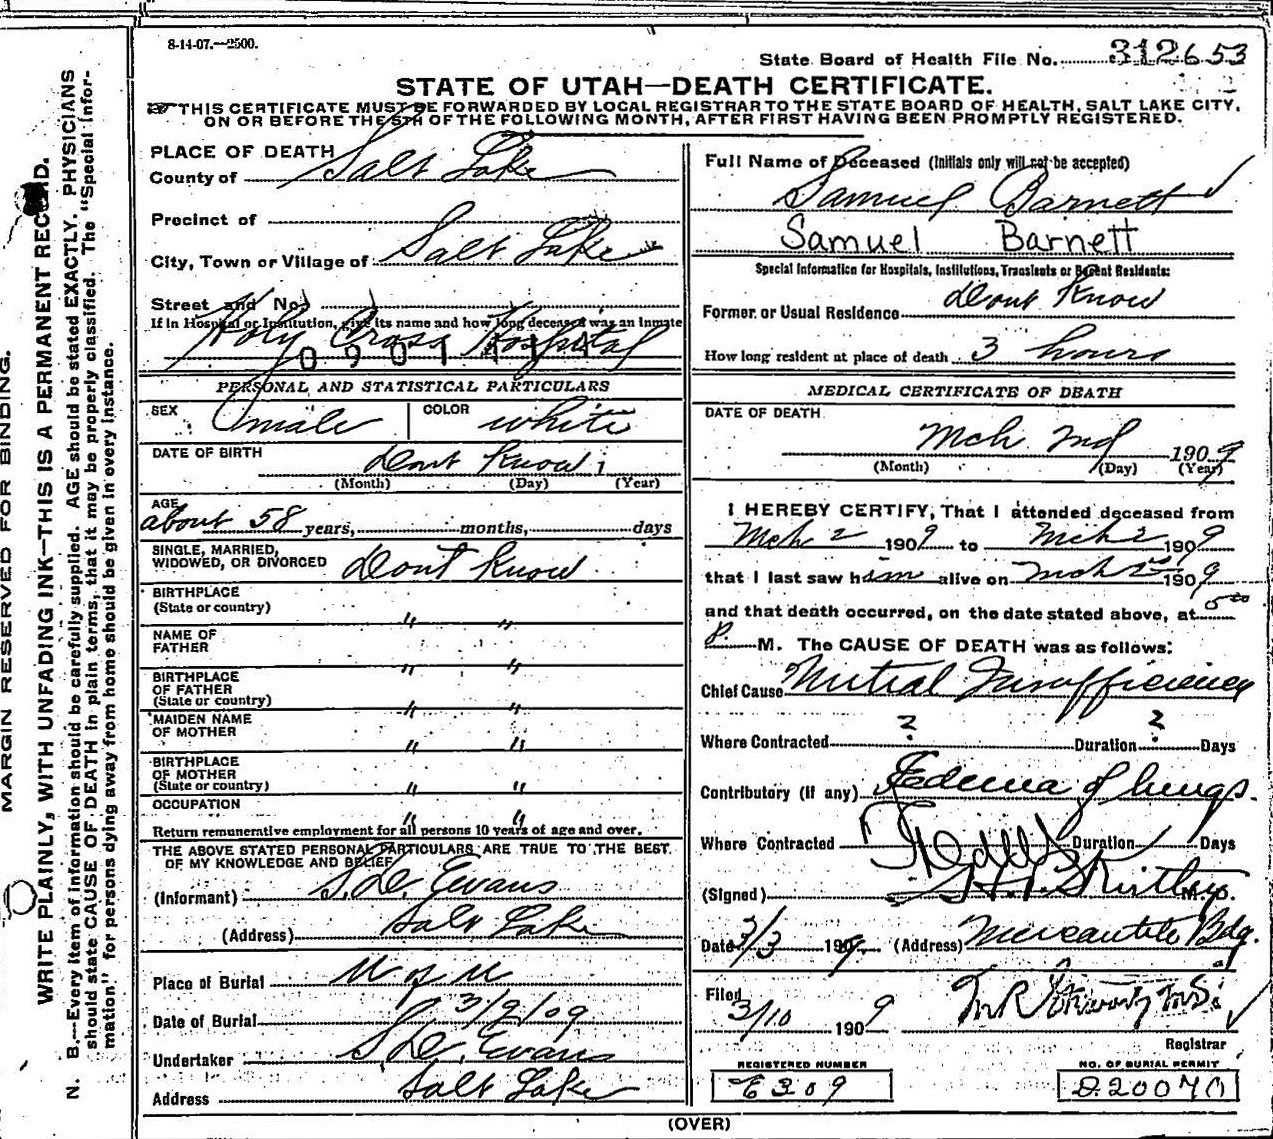 8-14-07.—2500.
State Board of Health File No. 312653
STATE OF UTAH—DEATH CERTIFICATE.
THIS CERTIFICATE MUST BE FORWARDED BY LOCAL REGISTRAR TO THE STATE BOARD OF HEALTH, SALT LAKE CITY,
ON OR BEFORE THE 5TH OF THE FOLLOWING MONTH, AFTER FIRST HAVING BEEN PROMPTLY REGISTERED.
MARGIN RESERVED FOR BINDING.
WRITE PLAINLY, WITH UNFADING INK—THIS IS A PERMANENT RECORD.
N. B.—Every item of information should be carefully supplied. AGE should be stated EXACTLY. PHYSICIANS
should state CAUSE OF DEATH in plain terms, that it may be properly classified. The "Special Infor-
mation" for persons dying away from home should be given in every instance.
PLACE OF DEATH
County of Salt Lake
Precinct of
City, Town or Village of Salt Lake
Street and No.
If in Hospital or Institution, give its name and how long deceased was an inmate
Holy Cross Hospital
PERSONAL AND STATISTICAL PARTICULARS
SEX male COLOR white
DATE OF BIRTH Dont Know
(Month) (Day) (Year)
AGE
about 58 years, months, days
SINGLE, MARRIED,
WIDOWED, OR DIVORCED Dont Know
BIRTHPLACE
(State or country) " "
NAME OF
FATHER " "
BIRTHPLACE
OF FATHER
(State or country) " "
MAIDEN NAME
OF MOTHER " "
BIRTHPLACE
OF MOTHER
(State or country) " "
OCCUPATION " "
Return remunerative employment for all persons 10 years of age and over.
THE ABOVE STATED PERSONAL PARTICULARS ARE TRUE TO THE BEST
OF MY KNOWLEDGE AND BELIEF
(Informant) S. D. Evans
(Address) Salt Lake
Place of Burial U of U
Date of Burial 3/9/09
Undertaker S. D. Evans
Address Salt Lake
Full Name of Deceased (Initials only will not be accepted)
Samuel Barnett
Samuel Barnett
Special Information for Hospitals, Institutions, Transients or Recent Residents:
Former or Usual Residence Dont Know
How long resident at place of death 3 hours
MEDICAL CERTIFICATE OF DEATH
DATE OF DEATH
Mch 2nd 1909
(Month) (Day) (Year)
I HEREBY CERTIFY, That I attended deceased from
Mch 2 1909 to Mch 2 1909
that I last saw him alive on Mch 2nd 1909
and that death occurred, on the date stated above, at 5 00
P. M. The CAUSE OF DEATH was as follows:
Chief Cause Mitral Insufficiency
Where Contracted ? Duration ? Days
Contributory (if any) Edema of lungs.
Where Contracted Duration Days
(Signed) M. D.
Date 3/3 1909. (Address) Mercantile Bdg.
Filed
3/10 1909
Registrar
REGISTERED NUMBER
E309
NO. OF BURIAL PERMIT
D.20070
(OVER)